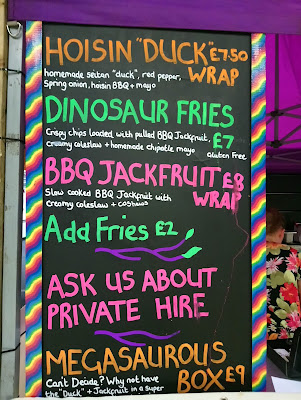 HOISIN "DUCK" £7.50
homemade seitan "duck", red pepper, WRAP
spring onion, hoisin BBQ + mayo
DINOSAUR FRIES
Crispy chips loaded with pulled BBQ Jackfruit, £7
creamy coleslaw + homemade chipotle mayo Gluten Free
BBQ JACKFRUIT £8
Slow cooked BBQ Jackfruit with WRAP
creamy coleslaw + cashews
Add Fries £2
ASK US ABOUT
PRIVATE HIRE
MEGASAUROUS
Can't Decide? Why not have BOX £9
the "Duck" + Jackfruit in a super